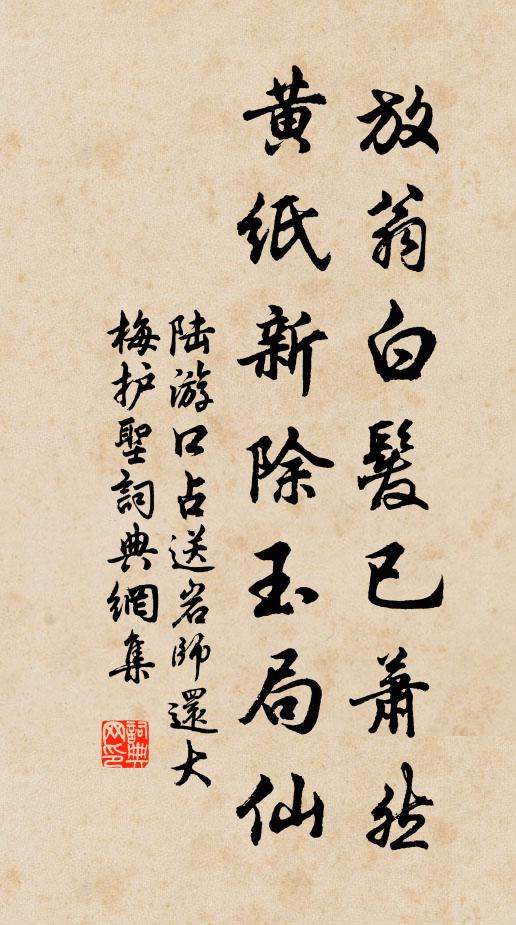 放翁白髮已蕭然
黄紙新除玉局仙
陆游口占送岩師還大
梅护聖詞典網集
詞典网印